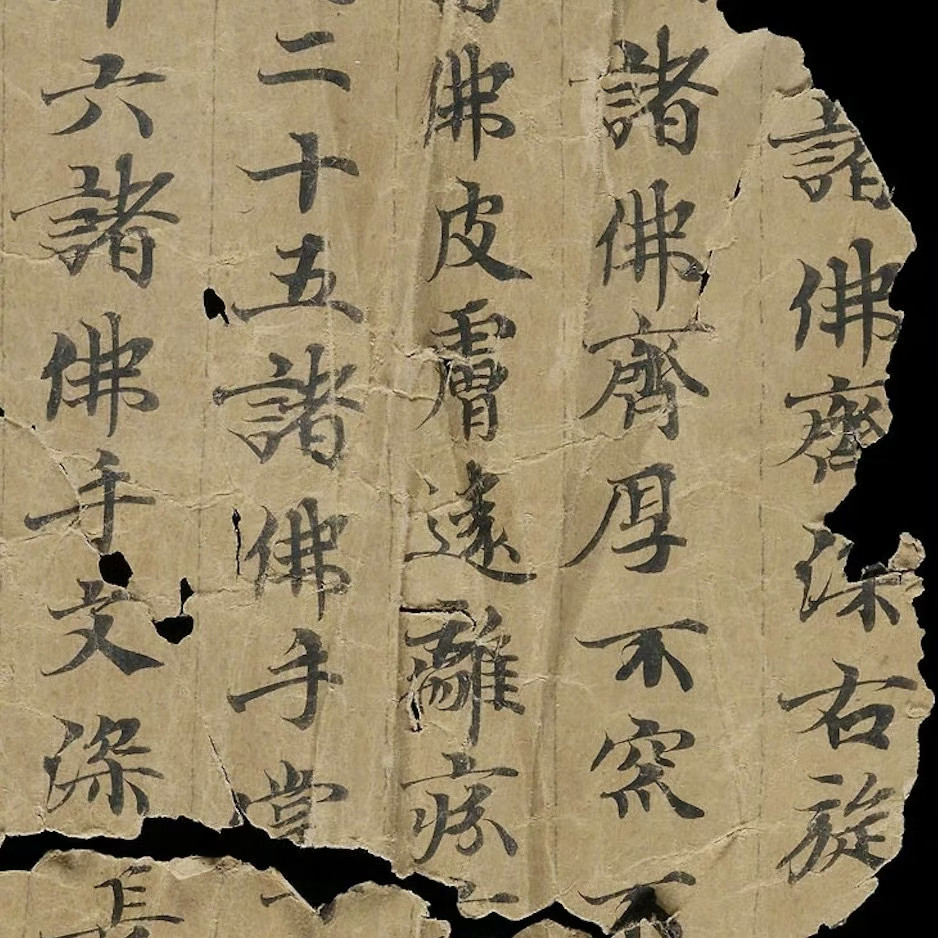 諸佛齊深右旋
諸佛齊厚不窊不
佛皮膚遠離
二十五諸佛手掌
十六諸佛手文深長